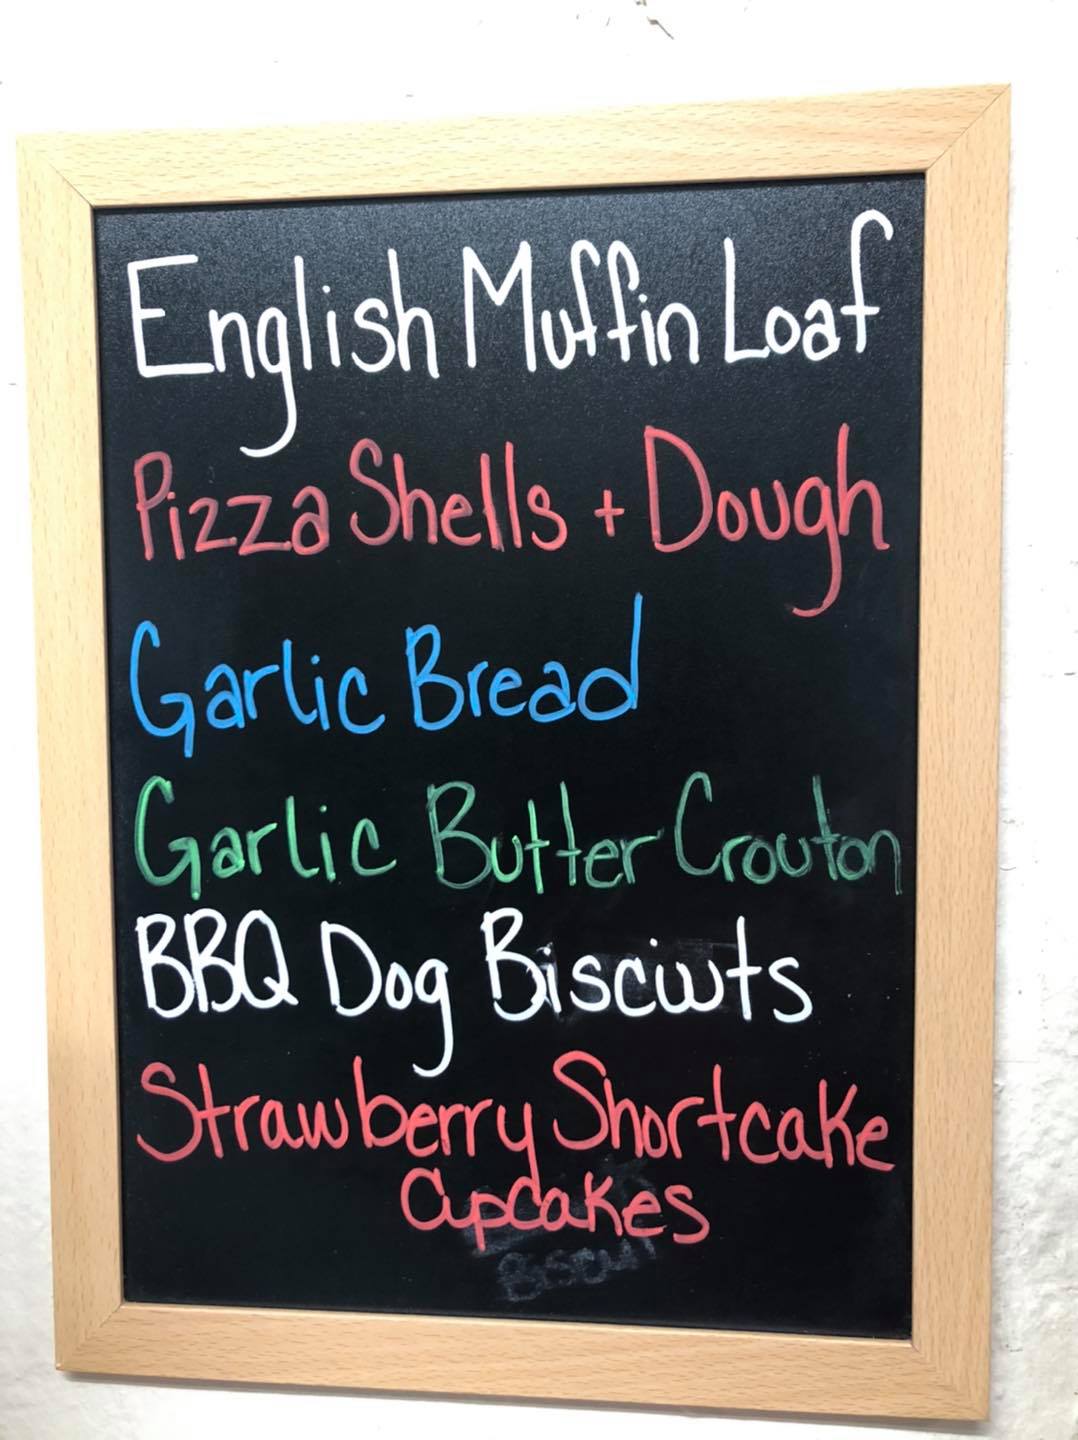 English Muffin Loaf
Pizza Shells + Dough
Garlic Bread
Garlic Butter Crouton
BBQ Dog Biscuits
Strawberry Shortcake
Cupcakes